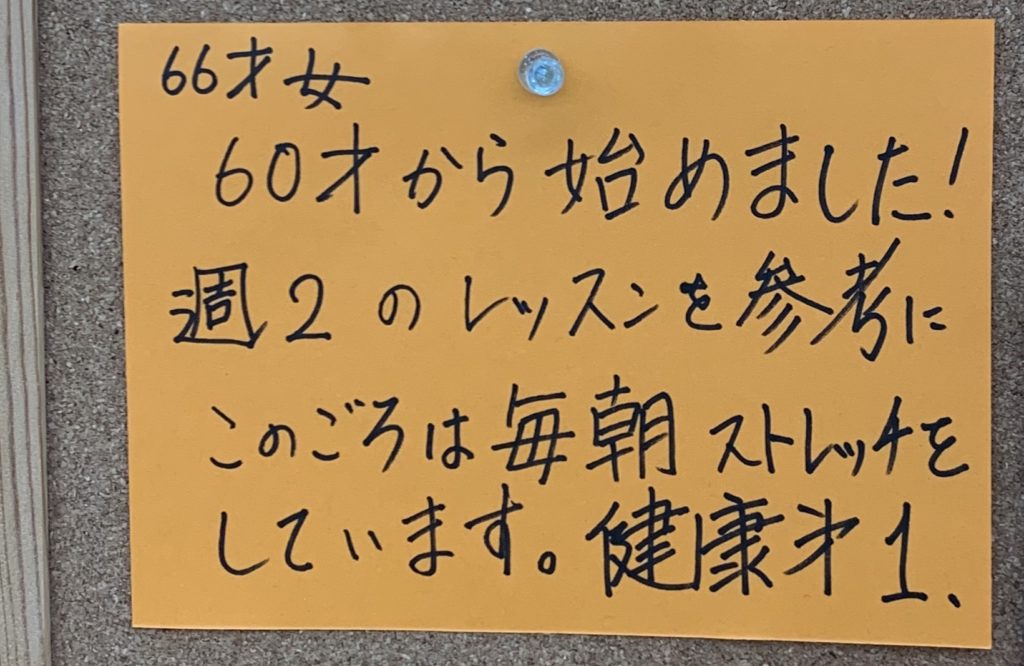 66才女
60才から始めました!
週2のレッスンを参考に
このごろは毎朝ストレッチを
しています。健康㐧1、